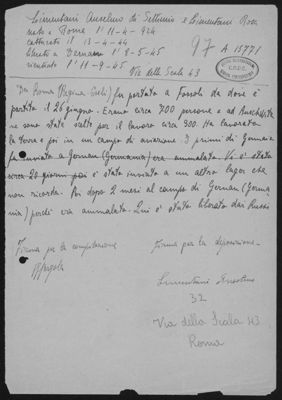 Limentani Anselmo di Settimio e Limentani Rosa
nato a Roma l'11-4-924
catturato il 13-4-44
liberato a Germansa l'8-5-45
rientrato l'11-9-45
97 A 15771
C.D.E.C.
Via della Scala 43
Da Roma (Regina Coeli) fu portato a Fossoli da dove è
partito il 26 giugno. Erano circa 700 persone e ad Auschwitz
ne sono state scelte per il lavoro circa 300. Ha lavorato
la terra e poi in un campo di aviazione. I primi di Gennaio
fu inviato a German (Germania) era ammalato. Vi è stato
circa 20 giorni poi è stato inviato a un altro lager che
non ricorda. Poi dopo 2 mesi al campo di German (Germa
nia) perché era ammalato. Qui è stato liberato dai Russi
Firma per la compilazione
Firma per la deposizione
Limentani Anselmo
32
Via della Scala 43
Roma